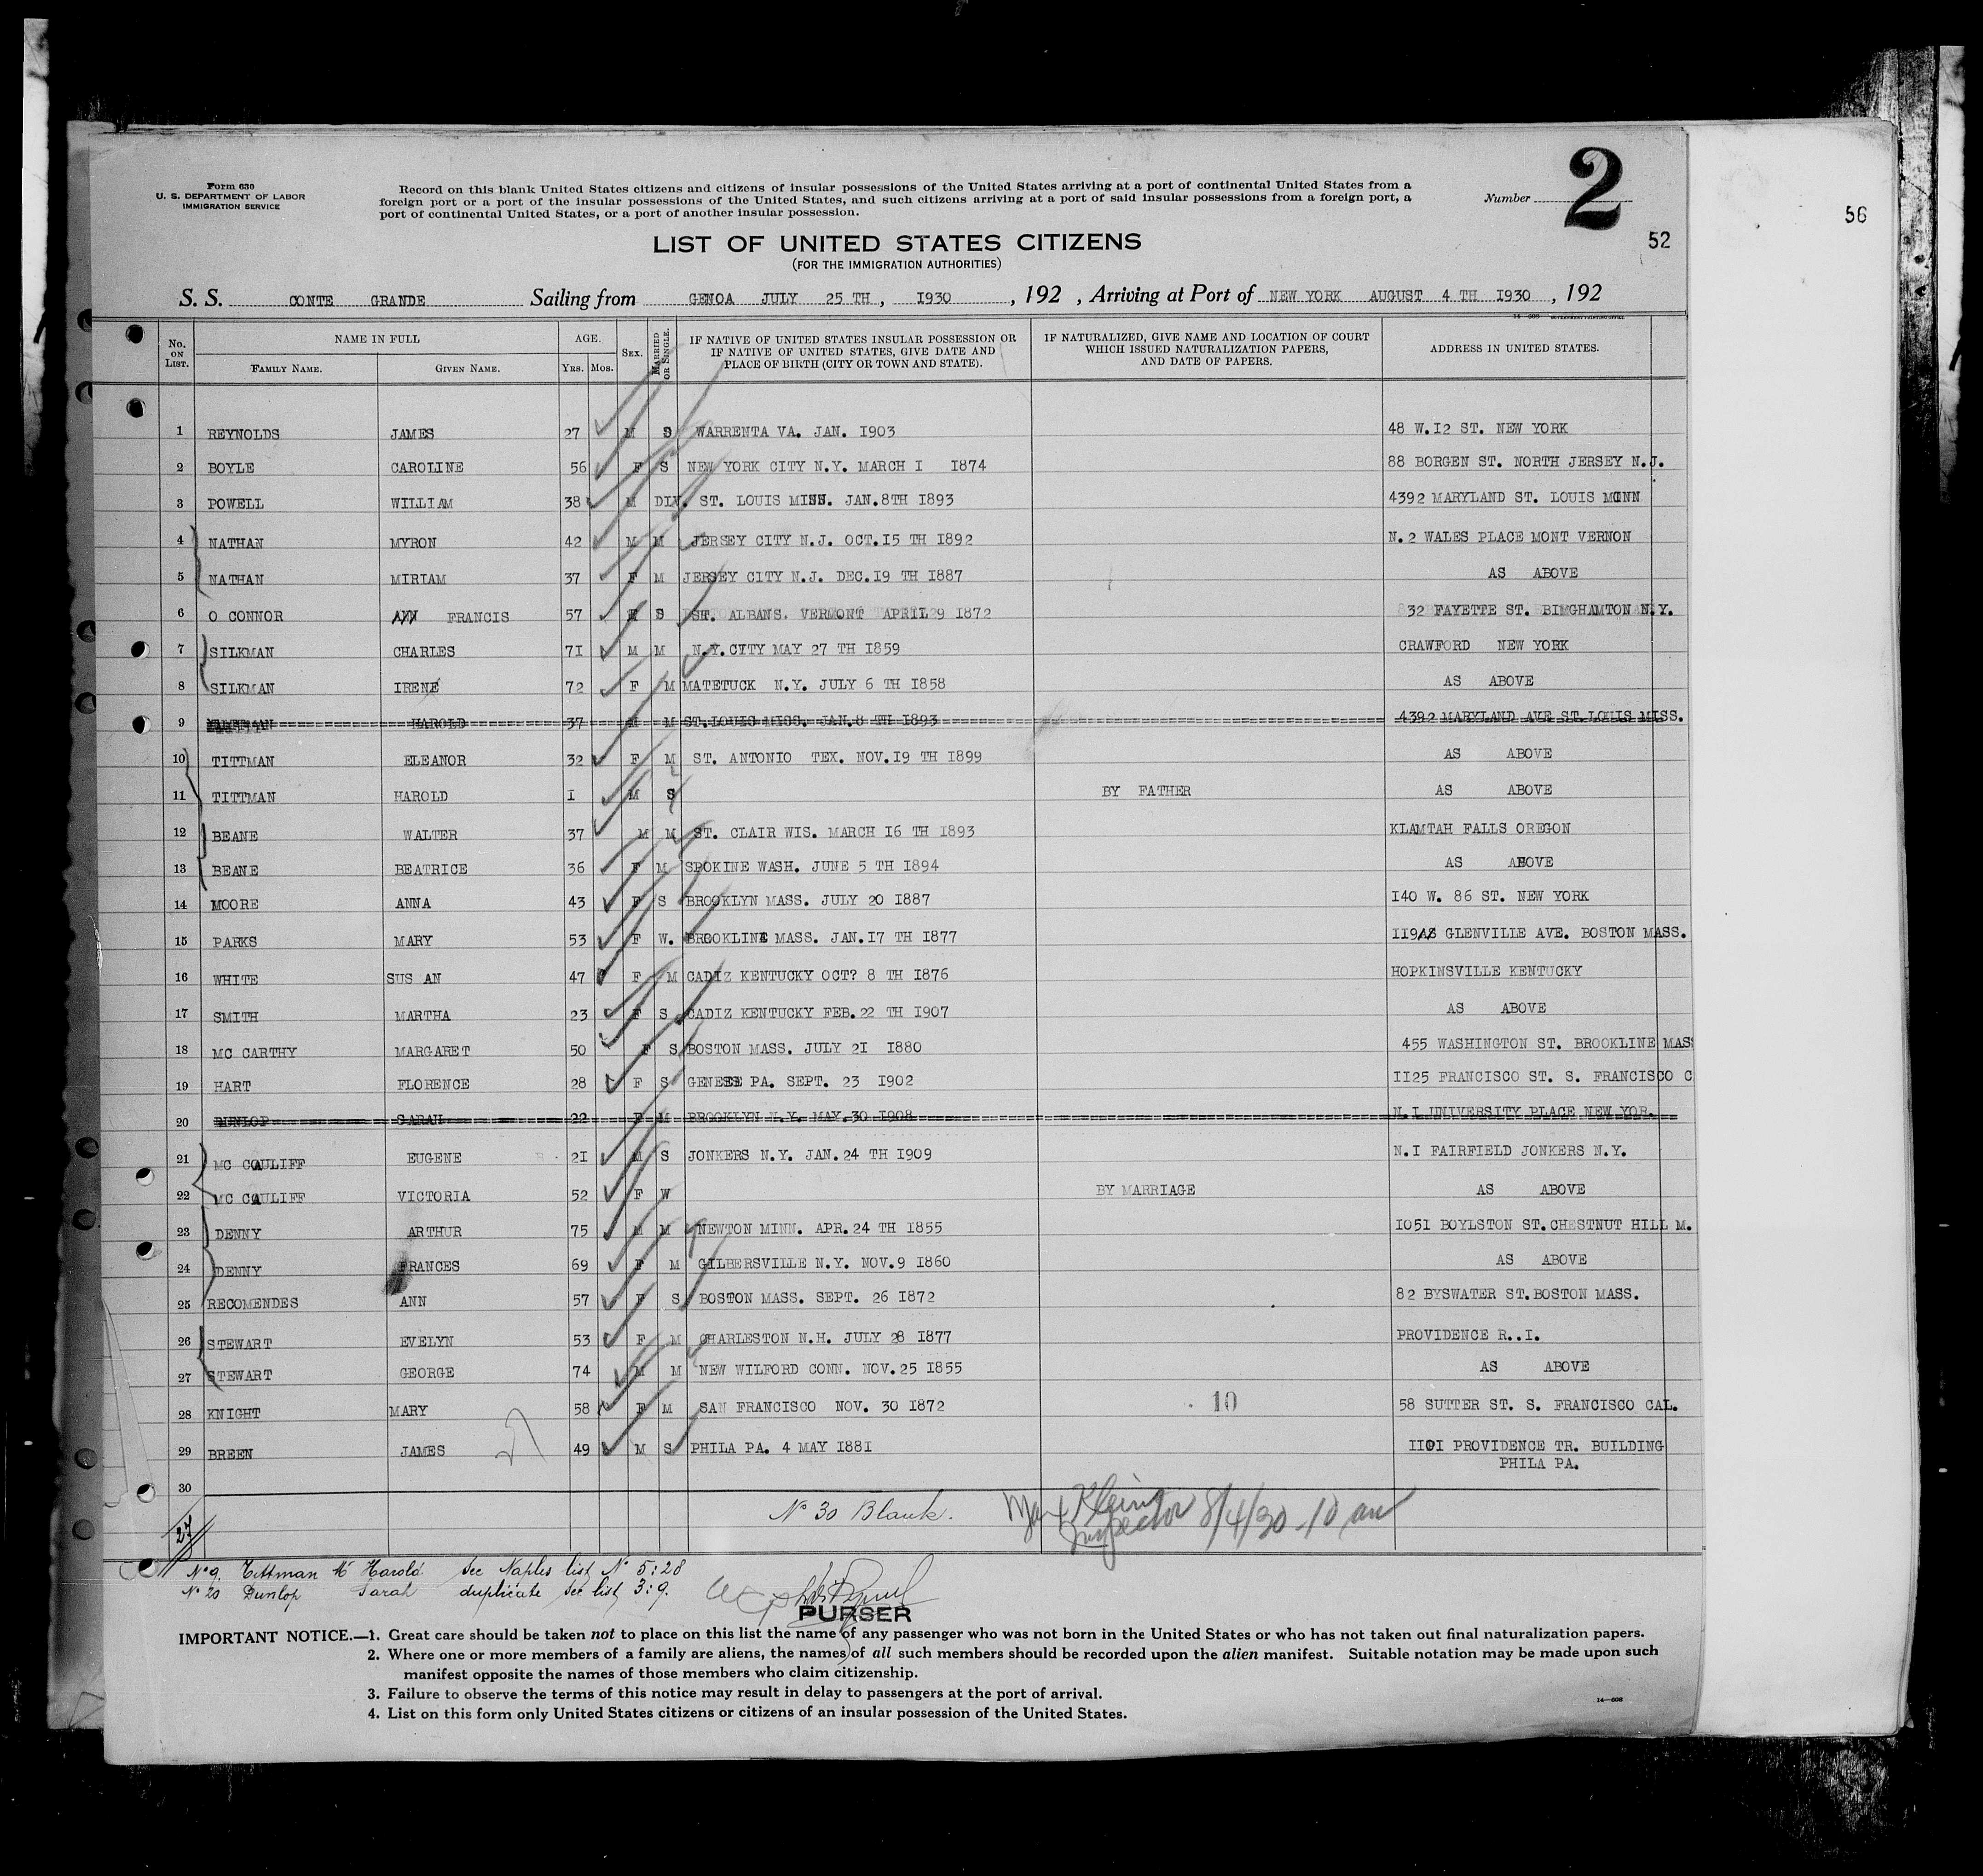 Form 630
U. S. DEPARTMENT OF LABOR
IMMIGRATION SERVICE
Record on this blank United States citizens and citizens of insular possessions of the United States arriving at a port of continental United States from a
foreign port or a port of the insular possessions of the United States, and such citizens arriving at a port of said insular possessions from a foreign port, a
port of continental United States, or a port of another insular possession.
Number 2
52
56
LIST OF UNITED STATES CITIZENS
(FOR THE IMMIGRATION AUTHORITIES)
S. S. CONTE GRANDE Sailing from GENOA JULY 25 TH, 1930, 192 , Arriving at Port of NEW YORK AUGUST 4 TH 1930, 192
No. ON LIST. NAME IN FULL FAMILY NAME. GIVEN NAME. AGE. YRS. MOS. SEX. MARRIED OR SINGLE. IF NATIVE OF UNITED STATES INSULAR POSSESSION OR IF NATIVE OF UNITED STATES, GIVE DATE AND PLACE OF BIRTH (CITY OR TOWN AND STATE). IF NATURALIZED, GIVE NAME AND LOCATION OF COURT WHICH ISSUED NATURALIZATION PAPERS, AND DATE OF PAPERS. ADDRESS IN UNITED STATES.
1 REYNOLDS JAMES 27 M S WARRENTA VA. JAN. 1903 48 W.12 ST. NEW YORK
2 BOYLE CAROLINE 56 F S NEW YORK CITY N.Y. MARCH 1 1874 88 BORGEN ST. NORTH JERSEY N.J.
3 POWELL WILLIAM 38 M DIV. ST. LOUIS MINN. JAN.8TH 1893 4392 MARYLAND ST. LOUIS MINN
4 NATHAN MYRON 42 M M JERSEY CITY N.J. OCT.15 TH 1892 N.2 WALES PLACE MONT VERNON
5 NATHAN MIRIAM 37 F M JERSEY CITY N.J. DEC.19 TH 1887 AS ABOVE
6 O CONNOR FRANCIS 57 S ST. ALBANS. VERMONT APRIL 29 1872 32 FAYETTE ST. BINGHAMTON N.Y.
7 SILKMAN CHARLES 71 M M N.Y.CITY MAY 27 TH 1859 CRAWFORD NEW YORK
8 SILKMAN IRENE 72 F M MATETUCK N.Y. JULY 6 TH 1858 AS ABOVE
9 HAROLD 37 M M ST.LOUIS MISS. JAN.8 TH 1893 4392 MARYLAND AVE ST.LOUIS MISS.
10 TITTMAN ELEANOR 32 F M ST. ANTONIO TEX. NOV.19 TH 1899 AS ABOVE
11 TITTMAN HAROLD 1 M S BY FATHER AS ABOVE
12 BEANE WALTER 37 M M ST. CLAIR WIS. MARCH 16 TH 1893 KLAMTAH FALLS OREGON
13 BEANE BEATRICE 36 F M SPOKINE WASH. JUNE 5 TH 1894 AS ABOVE
14 MOORE ANNA 43 F S BROOKLYN MASS. JULY 20 1887 140 W. 86 ST. NEW YORK
15 PARKS MARY 53 F W. BROOKLINE MASS. JAN.17 TH 1877 119 GLENVILLE AVE. BOSTON MASS.
16 WHITE SUS AN 47 F M CADIZ KENTUCKY OCT? 8 TH 1876 HOPKINSVILLE KENTUCKY
17 SMITH MARTHA 23 F S CADIZ KENTUCKY FEB.22 TH 1907 AS ABOVE
18 MC CARTHY MARGARET 50 F S BOSTON MASS. JULY 21 1880 455 WASHINGTON ST. BROOKLINE MASS
19 HART FLORENCE 28 F S GENESE PA. SEPT. 23 1902 1125 FRANCISCO ST. S. FRANCISCO C
20 DUNLOP SARAH 22 F M BROOKLYN N.Y. MAY.30 1908 N.I UNIVERSITY PLACE NEW YOR.
21 MC CAULIFF EUGENE 21 M S JONKERS N.Y. JAN.24 TH 1909 N.I FAIRFIELD JONKERS N.Y.
22 MC CAULIFF VICTORIA 52 F W BY MARRIAGE AS ABOVE
23 DENNY ARTHUR 75 M M NEWTON MINN. APR.24 TH 1855 1051 BOYLSTON ST.CHESTNUT HILL M.
24 DENNY FRANCES 69 F M GILBERSVILLE N.Y. NOV.9 1860 AS ABOVE
25 RECOMENDES ANN 57 F S BOSTON MASS. SEPT. 26 1872 82 BYSWATER ST.BOSTON MASS.
26 STEWART EVELYN 53 F M CHARLESTON N.H. JULY 28 1877 PROVIDENCE R..I.
27 STEWART GEORGE 74 M M NEW WILFORD CONN. NOV.25 1855 AS ABOVE
28 KNIGHT MARY 58 F M SAN FRANCISCO NOV. 30 1872 10 58 SUTTER ST. S. FRANCISCO CAL.
29 BREEN JAMES 49 M S PHILA PA. 4 MAY 1881 1101 PROVIDENCE TR. BUILDING
PHILA PA.
30
27
Nº 30 Blank. Max Klein 8/4/30 - 10 am
Inspector
Nº 9. Tittman Mr Harold see Naples list Nº 5:28
Nº 20 Dunlop Sarah duplicate see list 3:9.
PURSER
IMPORTANT NOTICE.—1. Great care should be taken not to place on this list the name of any passenger who was not born in the United States or who has not taken out final naturalization papers.
2. Where one or more members of a family are aliens, the names of all such members should be recorded upon the alien manifest. Suitable notation may be made upon such
manifest opposite the names of those members who claim citizenship.
3. Failure to observe the terms of this notice may result in delay to passengers at the port of arrival.
4. List on this form only United States citizens or citizens of an insular possession of the United States.
14—608